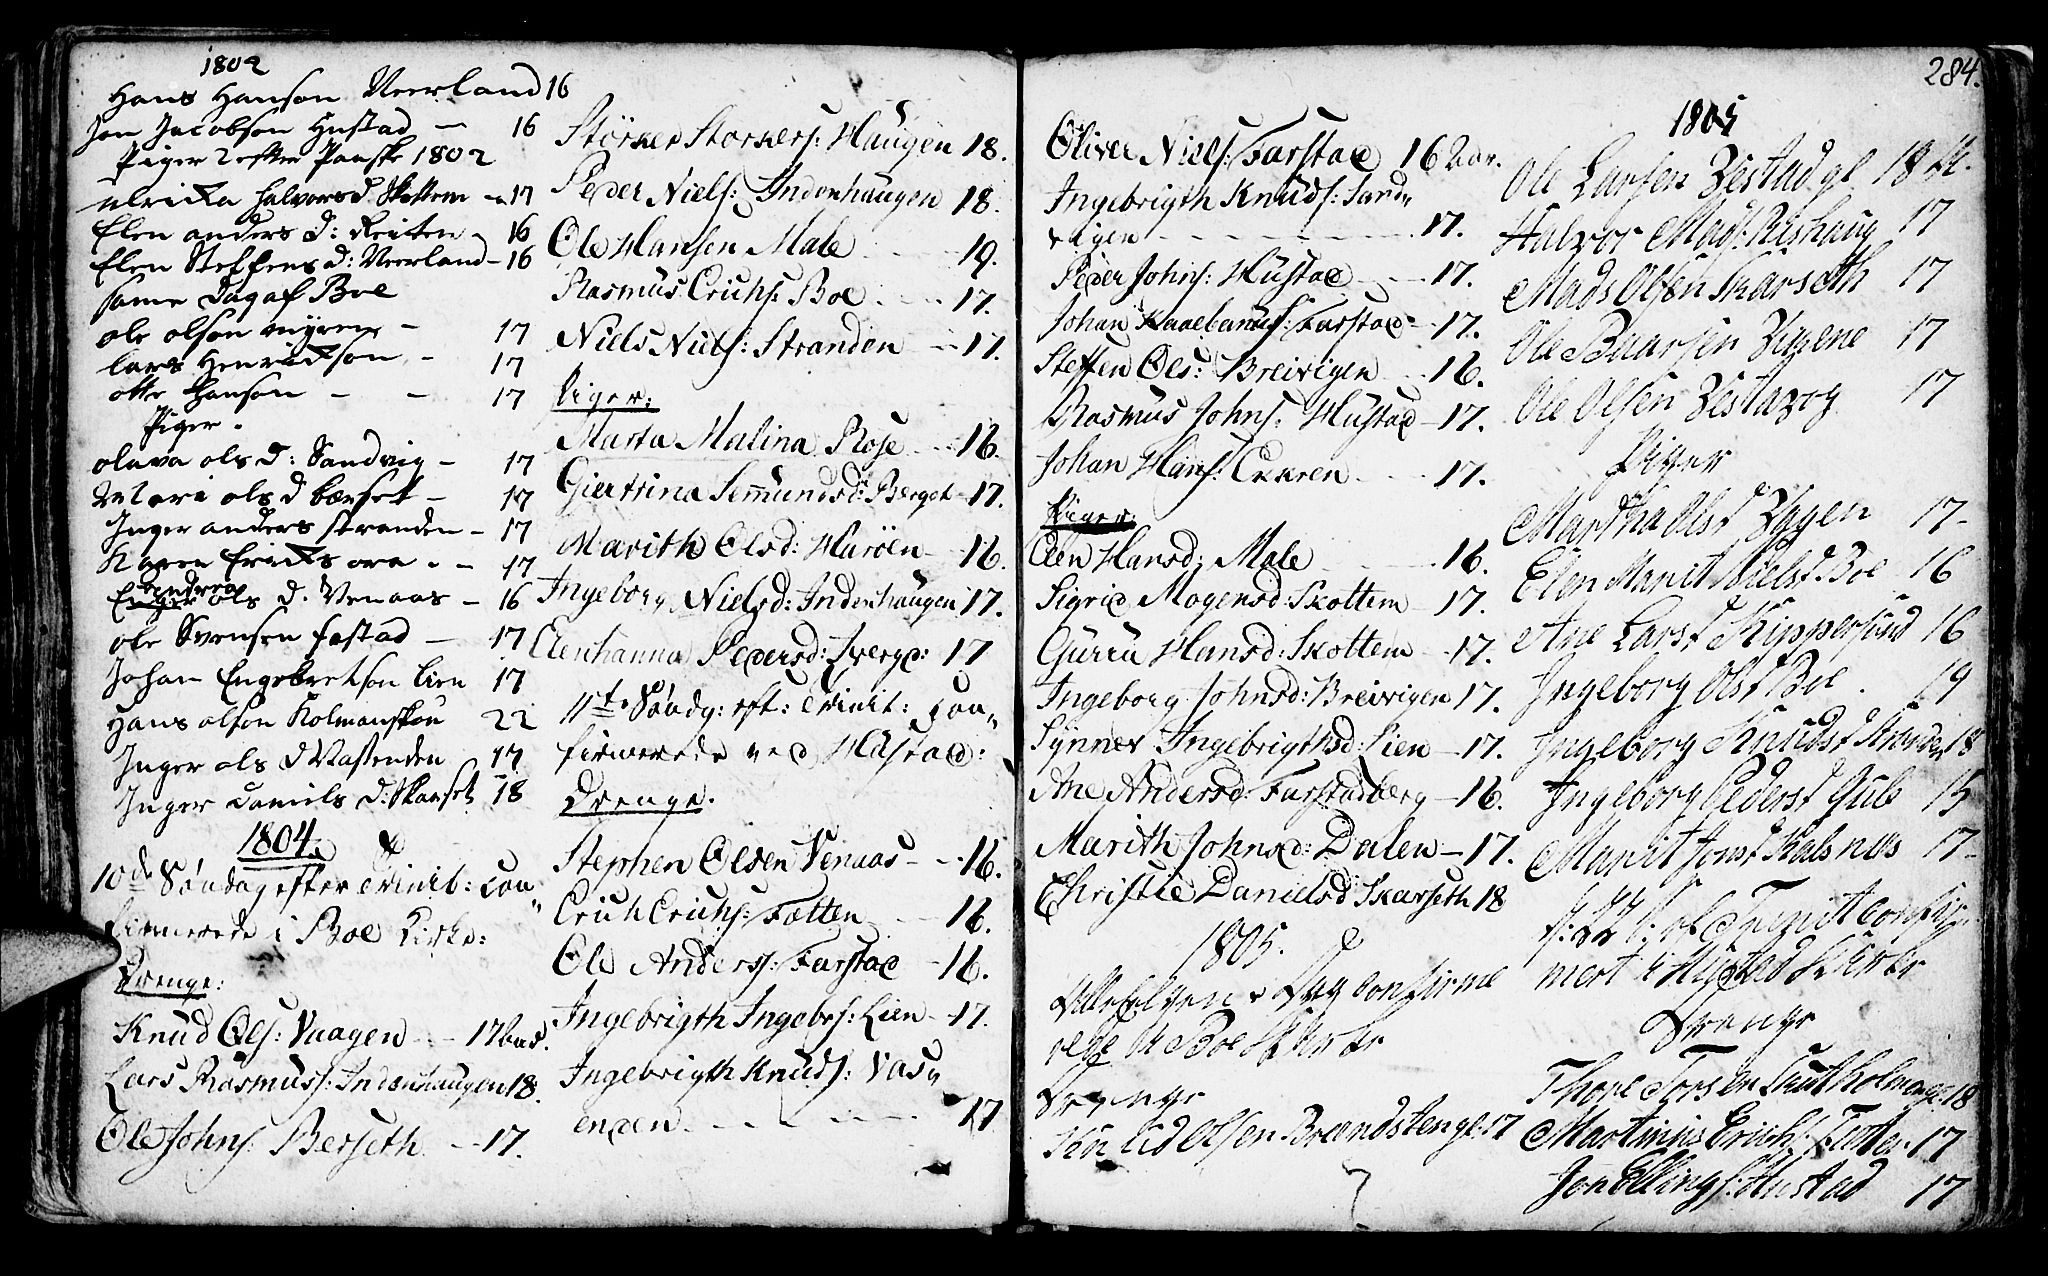 1802
Hans Hanson Neerland 16
Jon Jacobson Hustad — 16
Piger 2 efter Paaske 1802
Ulricka Halvors d. Skottem – 17
Elen Anders d: Reiten – 16
Elen Steffens d: Neerland – 16
samme Dag af Boe
ole olson myren – 17
lars Henrickson – 17
otte Hanson – – 17
Piger.
olava ols d: Sandvig – 17
Mari ols d berset – 17
Inger anders stranden – 17
Karen Ericks ora . – 17
Enger ols d. Venaas – 16
ole Svensen fastad — 17
Johan Engebretson lien 17
Hans olson Kolmanskou 22
Inger ols d Vastenden 17
Inger Daniels d: Skarset 18
1804.
10de Søndag efter Trinit: Con„
firmerede i Boe Kirke:
Drenge:
Knud Ols: Vaagen – – 17 aar.
Lars Rasmuss: Indenhaugen 18.
Ole Johns: Berseth – – 17.
Størker Storkers: Haugen 18.
Peder Niels: Indenhaugen 18.
Ole Hansen Male – – – 19.
Rasmus Erichs: Boe . – – 17.
Niels Niels: Stranden – – 17.
Piger:
Marta Malina Rose – – 16.
Giertrina Semundsd: Berget – 17.
Marith Olsd: Hurøen – – 16.
Ingeborg Nielsd: Indenhaugen 17.
Elenhanna Pedersd: 17
11te Søndg: eft: Trinit: Con„
firmerede ved Hustad:
Drenge.
Stephen Olsen Venaas – – 16.
Erich Erichs: Totten – – 16.
Ole Anders: Farstad – 16.
Ingebrigth Ingebrs: Lien – 17.
Ingebrigth Knuds: Vas„
enden. – – – – – 17
284.
Oliver Niels: Farstad 16 aar.
Ingebrigth Knuds: Sand„
vigen – – – – – – 17.
Peder Johns: Hustad – – 17.
Johan Farstad – 17.
Steffen Ols: Breivigen – 16.
Rasmus Johns: Hustad – 17.
Johan Hans: Ekren – – 17.
Piger:
Elen Hansd: Male – – – 16.
Sigrid Mogensd: Skottem – 17.
Gurru Hansd: Skottem – 17.
Ingeborg Johnsd: Breivigen 17.
Synnev Ingebrigthsd: Lien – 17.
Ane Andersd: Farstadberg – 16.
Marith Johnsd: Dalen – 17.
Christie Danielsd Skarseth 18
1805.
Allehelgens Dag confirme
rede i Boe Kirke
Drenge
Olsen Brandstenge: 17
1805
Ole Larsen Vestad gl 18 A.
Halvor Mads: Rishaug 17
Mads Olsen Skarseth 17
Ole Baarsen 17
Ole Olsen 17
Piger
Martha Olsd 17 –
Elen Marit Nielsd Boe 16
Ane Larsd Kippersund 16
Ingeborg Olsd Boe . 19
Ingeborg Knudsd Stranden 18
Ingeborg Pedersd Guls 15
Marit Jonsd Kalsnes 17 –
S: af Trinit confir„
mert i Hustad Kirke
Drenge
Thore Torsen 18
Martinus Erichs: Totten 17
Jon Ellings: Hustad 17